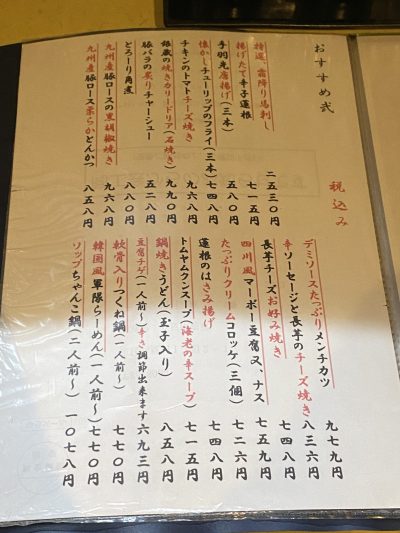 おすすめ弐
税込み
特選、霜降り馬刺し 二五三〇円
揚げたて辛子蓮根 七一五円
手羽先唐揚げ(三本) 五八〇円
懐かしチューリップのフライ(三本) 七四八円
チキンのトマトチーズ焼き 九六八円
銀蔵の焼きカリードリア(石焼き) 九九〇円
豚バラの炙りチャーシュー 五二八円
とろーり角煮 八八〇円
九州産豚ロースの黒胡椒焼き 九六八円
九州産豚ロース柔らかとんかつ 八五八円
デミソースたっぷりメンチカツ 九七九円
辛ソーセージと長芋のチーズ焼き 八三六円
長芋チーズお好み焼き 七四八円
四川風マーボー豆腐又、ナス 七五九円
たっぷりクリームコロッケ(三個) 七二六円
蓮根のはさみ揚げ 七四八円
トムヤムクンスープ(海老の辛スープ) 七一五円
鍋焼きうどん(玉子入り) 八五八円
豆腐チゲ(一人前〜)辛さ調節出来ます 六九三円
軟骨入りつくね鍋(一人前〜) 七七〇円
韓国風軍隊らーめん(一人前〜) 七七〇円
ソップちゃんこ鍋(二人前〜) 一〇七八円